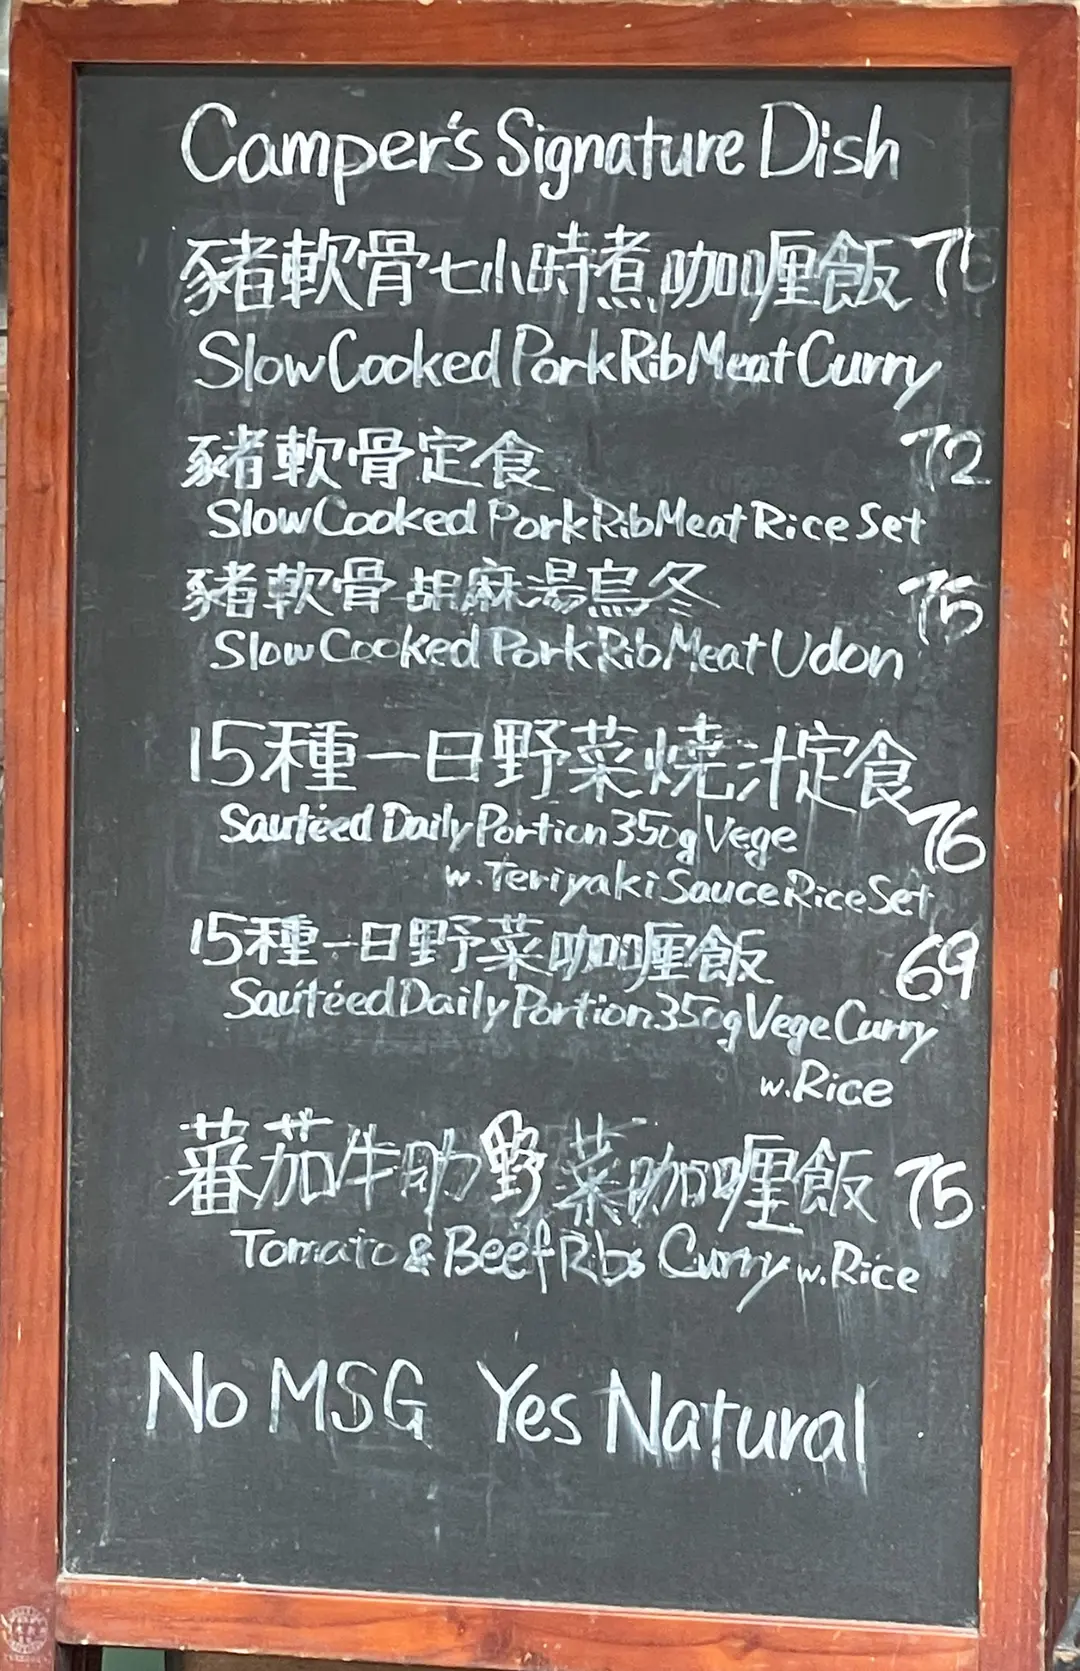 Camper's Signature Dish
豬軟骨七小時煮咖喱飯
Slow Cooked Pork Rib Meat Curry
豬軟骨定食 72
Slow Cooked Pork Rib Meat Rice Set
豬軟骨胡麻湯烏冬 75
Slow Cooked Pork Rib Meat Udon
15種一日野菜燒汁定食
Sautéed Daily Portion 350g Vege 76
w. Teriyaki Sauce Rice Set
15種一日野菜咖喱飯 69
Sautéed Daily Portion 350g Vege Curry
w. Rice
蕃茄牛肋野菜咖喱飯 75
Tomato & Beef Ribs Curry w. Rice
No MSG Yes Natural